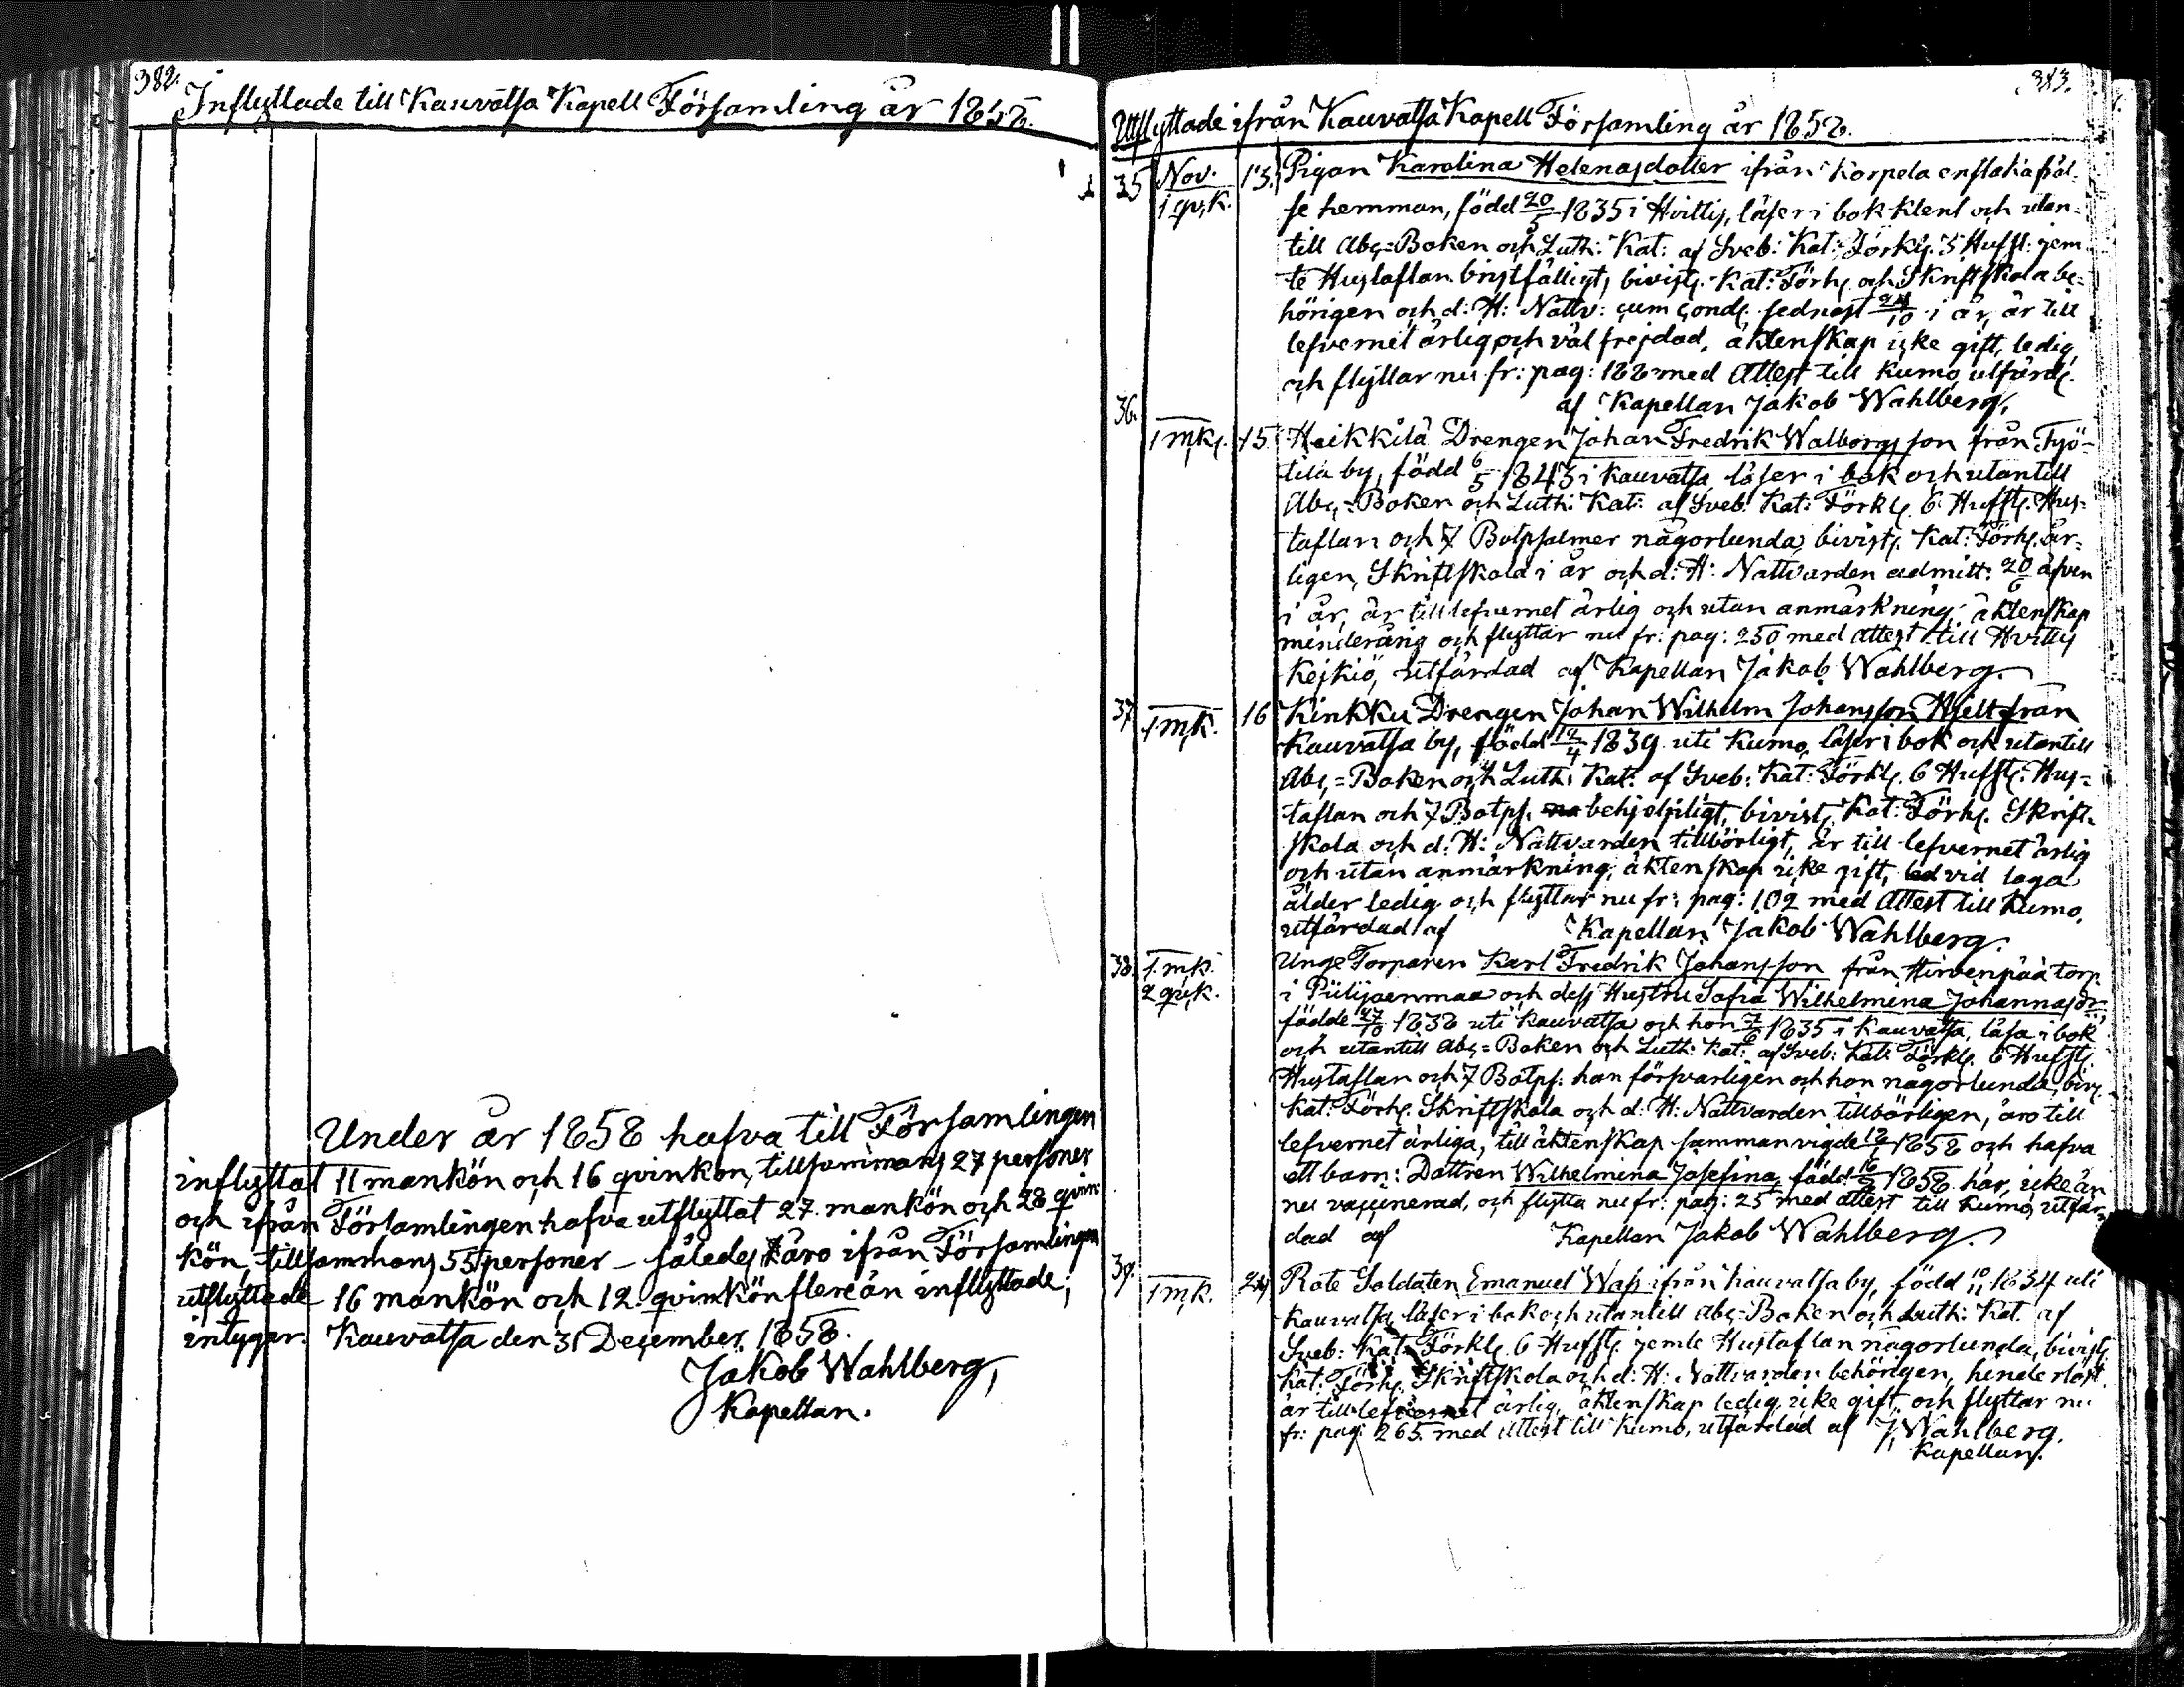 382.
Inflyttade till Kauvatsa Kapell Församling år 1858.
Under år 1858 hafva till Församlingen
inflyttat 11 mankön och 16 qvinkön, tillsammans 27 personer
och ifrån Församlingen hafva utflyttat 27 mankön och 28 qvin-
kön, tillsammans 55 personer – således äro ifrån Församlingen
utflyttade 16 mankön och 12 qvinkön flere än inflyttade;
intygar. Kauvatsa den 31 December 1858.
Jakob Wahlberg,
Kapellan.
383.
Utflyttade ifrån Kauvatsa Kapell Församling år 1858.
35 Nov. 13. Pigan Karolina Helenasdotter ifrån Korpela
1 qv,k. se hemman, född 20/5 1835 i Hvittis, läser i bok klent och utan-
till Abc-Boken och Luth: Kat: af Sveb: Kat: Förkl. 5 Hufst: jem-
te Hustaflan bristfälligt, bivist. Kat: Förh. och Skriftskola be-
hörigen och d: H: Nattv: cum cond. sednast 24/10 i år, är till
lefvernet ärlig och väl frejdad, äktenskap icke gift, ledig
och flyttar nu fr: pag: 188 med Attest till Kumo, utfärd.
af Kapellan Jakob Wahlberg.
36. 1 mk. 15 Heikkilä Drengen Johan Fredrik Walborgsson från Työ-
tilä by, född 6/5 1843 i Kauvatsa, läser i bok och utantill
Abc-Boken och Luth: Kat: af Sveb: Kat: Förkl. 6 Hufst. Hus-
taflan och 7 Botpsalmer någorlunda, bivist. Kat: Förh. år-
ligen, Skriftskola i år och d: H: Nattvarden admitt: 20/6 äfven
i år, är till lefvernet ärlig och utan anmärkning; äktenskap
minderårig och flyttar nu fr: pag: 250 med attest till Hvittis
Keikiö, utfärdad af Kapellan Jakob Wahlberg.
37 1 mk. 16 Kinkku Drengen Johan Wilhelm Johansson Hjelt från
Kauvatsa by, född 12/4 1839 uti Kumo, läser i bok och utantill
Abc-Boken och Luth: Kat: af Sveb: Kat: Förkl. 6 Hufst. Hus-
taflan och 7 Botps. behjelpligt, bivist. Kat: Förh. Skrift-
skola och d: H: Nattvarden tillbörligt, är till lefvernet ärlig
och utan anmärkning, äktenskap icke gift, vid laga
ålder ledig och flyttar nu fr: pag: 102 med Attest till Kumo,
utfärdad af Kapellan Jakob Wahlberg.
38. 1. mk. Unge Torparen Karl Fredrik Johansson från Hirvenpää torp
2 qv,k. i Pülijoenmaa och dess Hustru Sofia Wilhelmina Johannasdr,
födde 27/10 1838 uti Kauvatsa och hon 7/6 1835 i Kauvatsa, läsa i bok
och utantill Abc-Boken och Luth: Kat: af Sveb: Kat: Förkl. 6 Hufst.
Hustaflan och 7 Botps: han försvarligen och hon någorlunda, biv.
Kat: Förh. Skriftskola och d: H: Nattvarden tillbörligen, äro till
lefvernet ärliga, till äktenskap sammanvigde 1858 och hafva
ett barn: Dottren Wilhelmina Josefina, född 1858 här, icke än
nu vaccinerad, och flytta nu fr: pag: 25 med attest till Kumo, utfär-
dad af Kapellan Jakob Wahlberg.
39. 1 mk. 24 Rote Soldaten Emanuel Wass ifrån Kauvatsa by, född 10/11 1834 uti
Kauvatsa, läser i bok och utantill Abc-Boken och Luth: Kat. af
Sveb: Kat: Förkl. 6 Hufst. jemte Hustaflan någorlunda, bivist.
Kat: Förh. Skriftskola och d: H: Nattvarden behörigen, hinderslöst.
är till lefvernet ärlig, äktenskap ledig, icke gift, och flyttar nu
fr: pag: 265 med attest till Kumo, utfärdad af J. Wahlberg.
Kapellan.